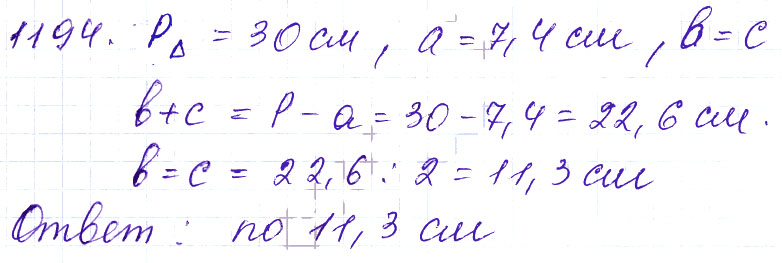 1194. P△ = 30 см, a = 7,4 см, в = с
в+с = P - a = 30 - 7,4 = 22,6 см.
в = с = 22,6 : 2 = 11,3 см
Ответ: по 11,3 см